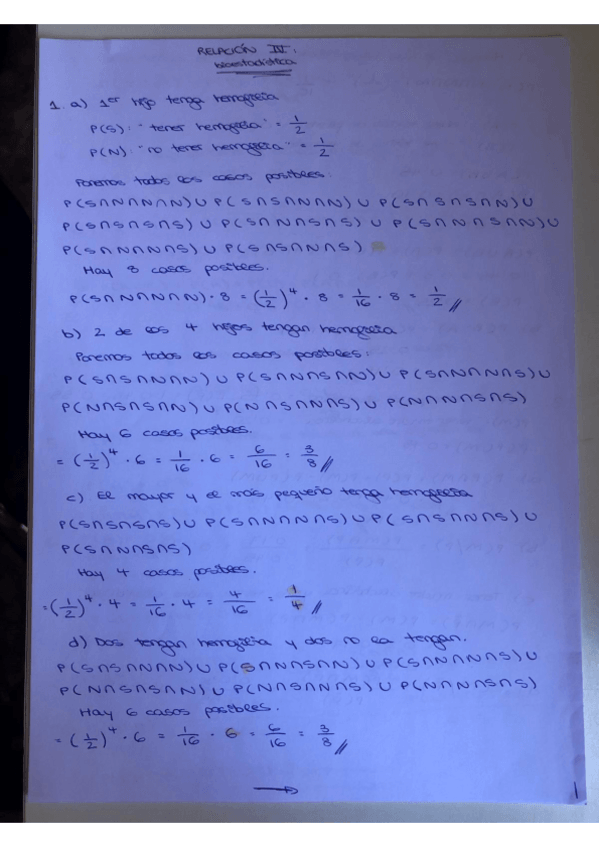 RELACIÓN IV.
bioestadística
1. a) 1er hijo tenga hemofilia
P(S): "tener hemofilia" = 1/2
P(N): "no tener hemofilia" = 1/2
Ponemos todos los casos posibles:
P(S∩N∩N∩N) ∪ P(S∩S∩N∩N) ∪ P(S∩S∩S∩N) ∪
P(S∩S∩S∩S) ∪ P(S∩N∩S∩S) ∪ P(S∩N∩S∩N) ∪
P(S∩N∩N∩S) ∪ P(S∩S∩N∩S)
Hay 8 casos posibles.
P(S∩N∩N∩N) · 8 = (1/2)^4 · 8 = 1/16 · 8 = 1/2 //
b) 2 de los 4 hijos tengan hemofilia
Ponemos todos los casos posibles:
P(S∩S∩N∩N) ∪ P(S∩N∩S∩N) ∪ P(S∩N∩N∩S) ∪
P(N∩S∩S∩N) ∪ P(N∩S∩N∩S) ∪ P(N∩N∩S∩S)
Hay 6 casos posibles.
= (1/2)^4 · 6 = 1/16 · 6 = 6/16 = 3/8 //
c) El mayor y el más pequeño tenga hemofilia
P(S∩S∩S∩S) ∪ P(S∩N∩N∩S) ∪ P(S∩S∩N∩S) ∪
P(S∩N∩S∩S)
Hay 4 casos posibles.
= (1/2)^4 · 4 = 1/16 · 4 = 4/16 = 1/4 //
d) Dos tengan hemofilia y dos no la tengan.
P(S∩S∩N∩N) ∪ P(S∩N∩S∩N) ∪ P(S∩N∩N∩S) ∪
P(N∩S∩S∩N) ∪ P(N∩S∩N∩S) ∪ P(N∩N∩S∩S)
Hay 6 casos posibles.
= (1/2)^4 · 6 = 1/16 · 6 = 6/16 = 3/8 //
→
1